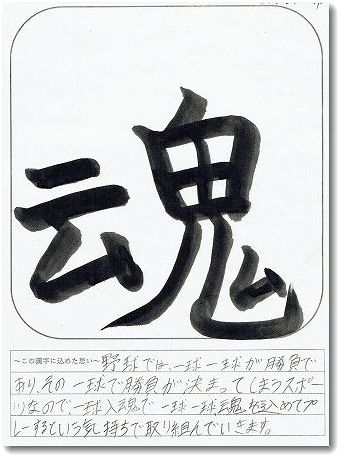 魂
～この漢字に込めた思い～野球では、一球一球が勝負で
あり、その一球で勝負が決まってしまうスポー
ツなので、一球入魂で一球一球魂を込めてプ
レーするという気持ちで取り組んでいきます。